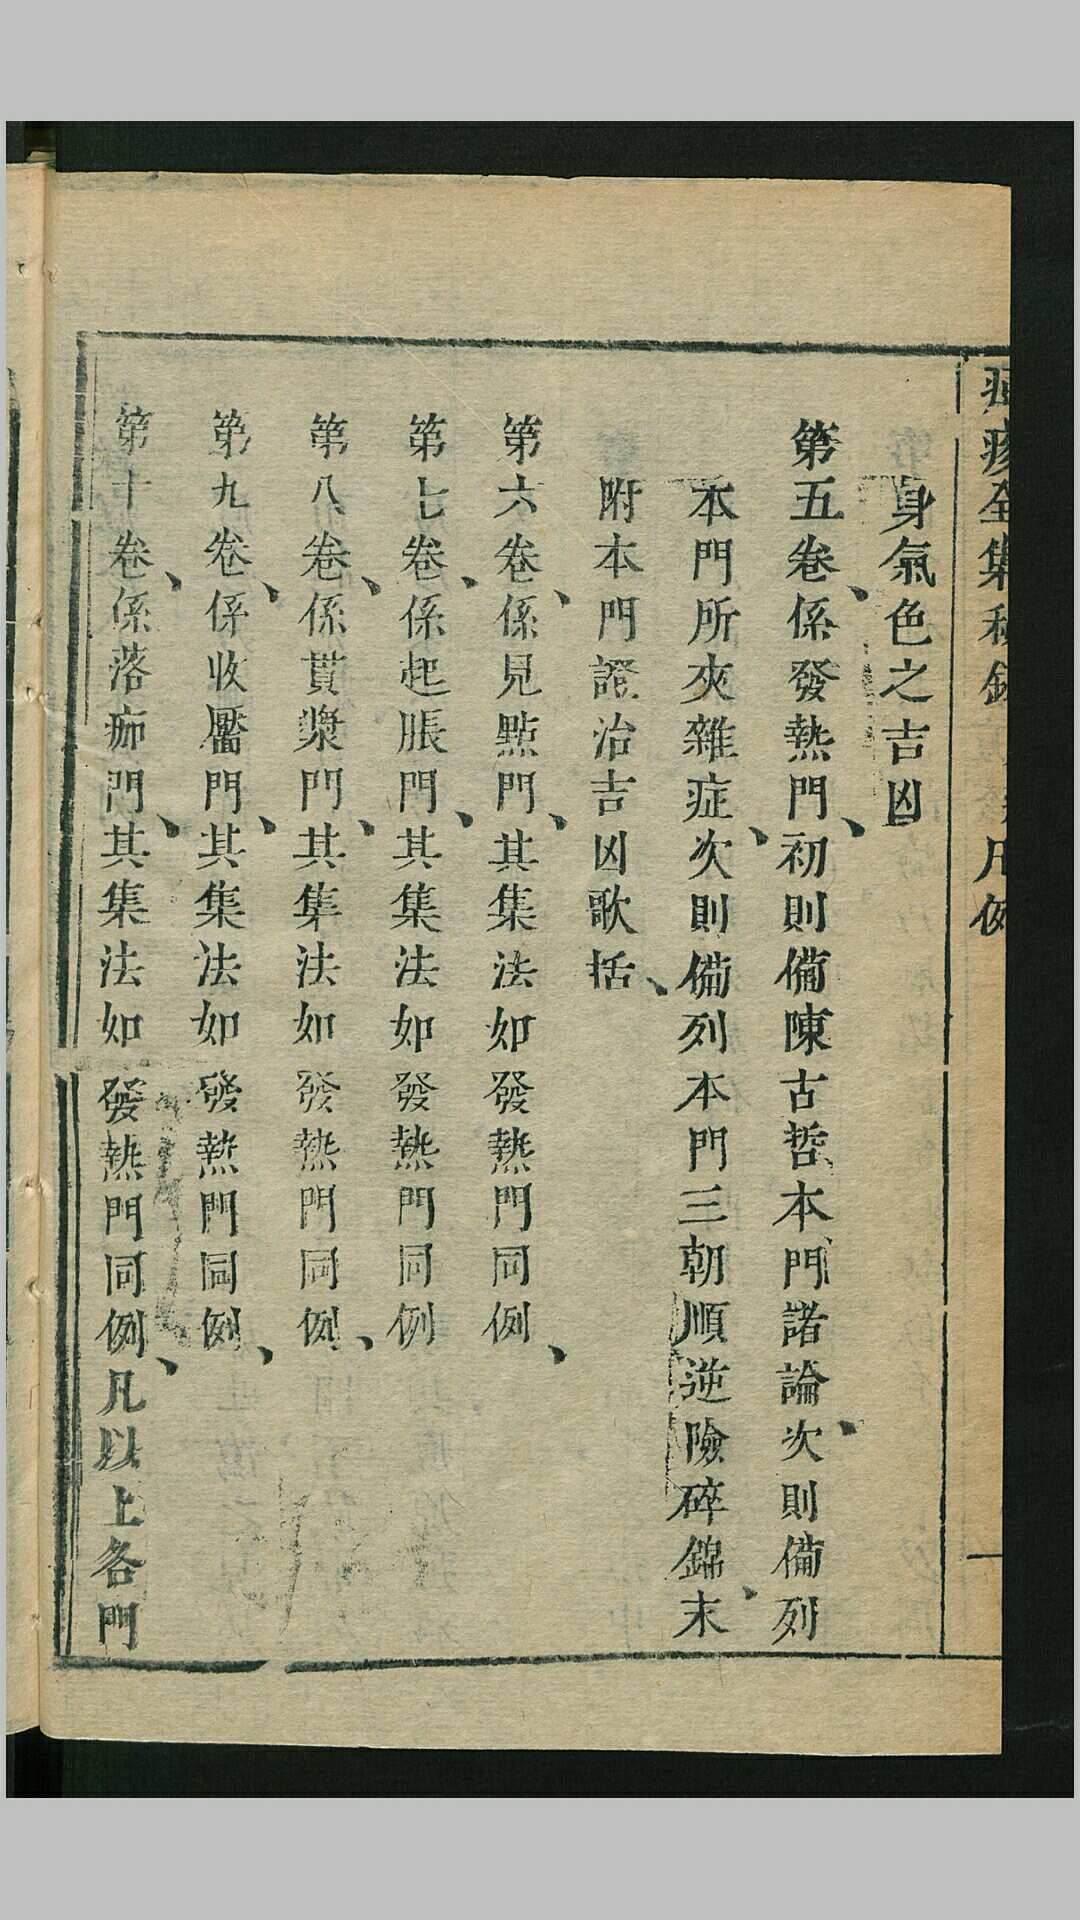 痘疹全集秘錄 凡例 一
身氣色之吉凶
第五卷、係發熱門、初則備陳古哲本門諸論、次則備列
本門所夾雜症、次則備列本門三朝順逆險碎錦、末
附本門證治吉凶歌括、
第六卷、係見點門、其集法如發熱門同例、
第七卷、係起脹門、其集法如發熱門同例
第八卷、係貫漿門、其集法如發熱門同例、
第九卷、係收靨門、其集法如發熱門同例、
第十卷、係落痂門、其集法如發熱門同例、凡以上各門